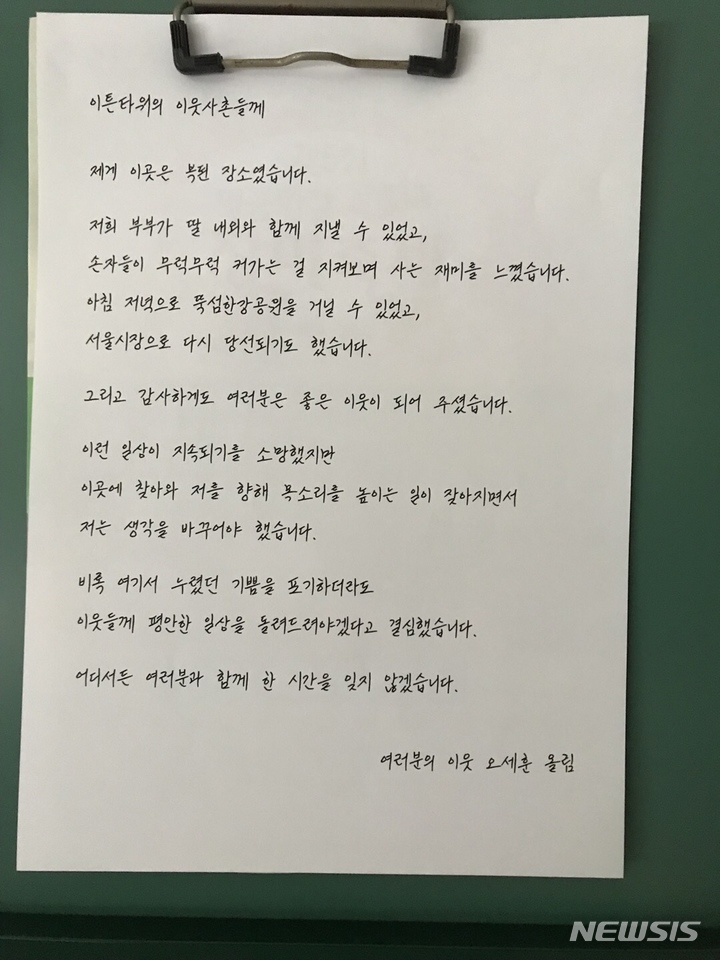 이튼타워의 이웃사촌들께
제게 이곳은 복된 장소였습니다.
저희 부부가 딸 내외와 함께 지낼 수 있었고,
손자들이 무럭무럭 커가는 걸 지켜보며 사는 재미를 느꼈습니다.
아침 저녁으로 뚝섬한강공원을 거닐 수 있었고,
서울시장으로 다시 당선되기도 했습니다.
그리고 감사하게도 여러분은 좋은 이웃이 되어 주셨습니다.
이런 일상이 지속되기를 소망했지만
이곳에 찾아와 저를 향해 목소리를 높이는 일이 잦아지면서
저는 생각을 바꾸어야 했습니다.
비록 여기서 누렸던 기쁨을 포기하더라도
이웃들께 평안한 일상을 돌려드려야겠다고 결심했습니다.
어디서든 여러분과 함께 한 시간을 잊지 않겠습니다.
여러분의 이웃 오세훈 올림
NEWSIS